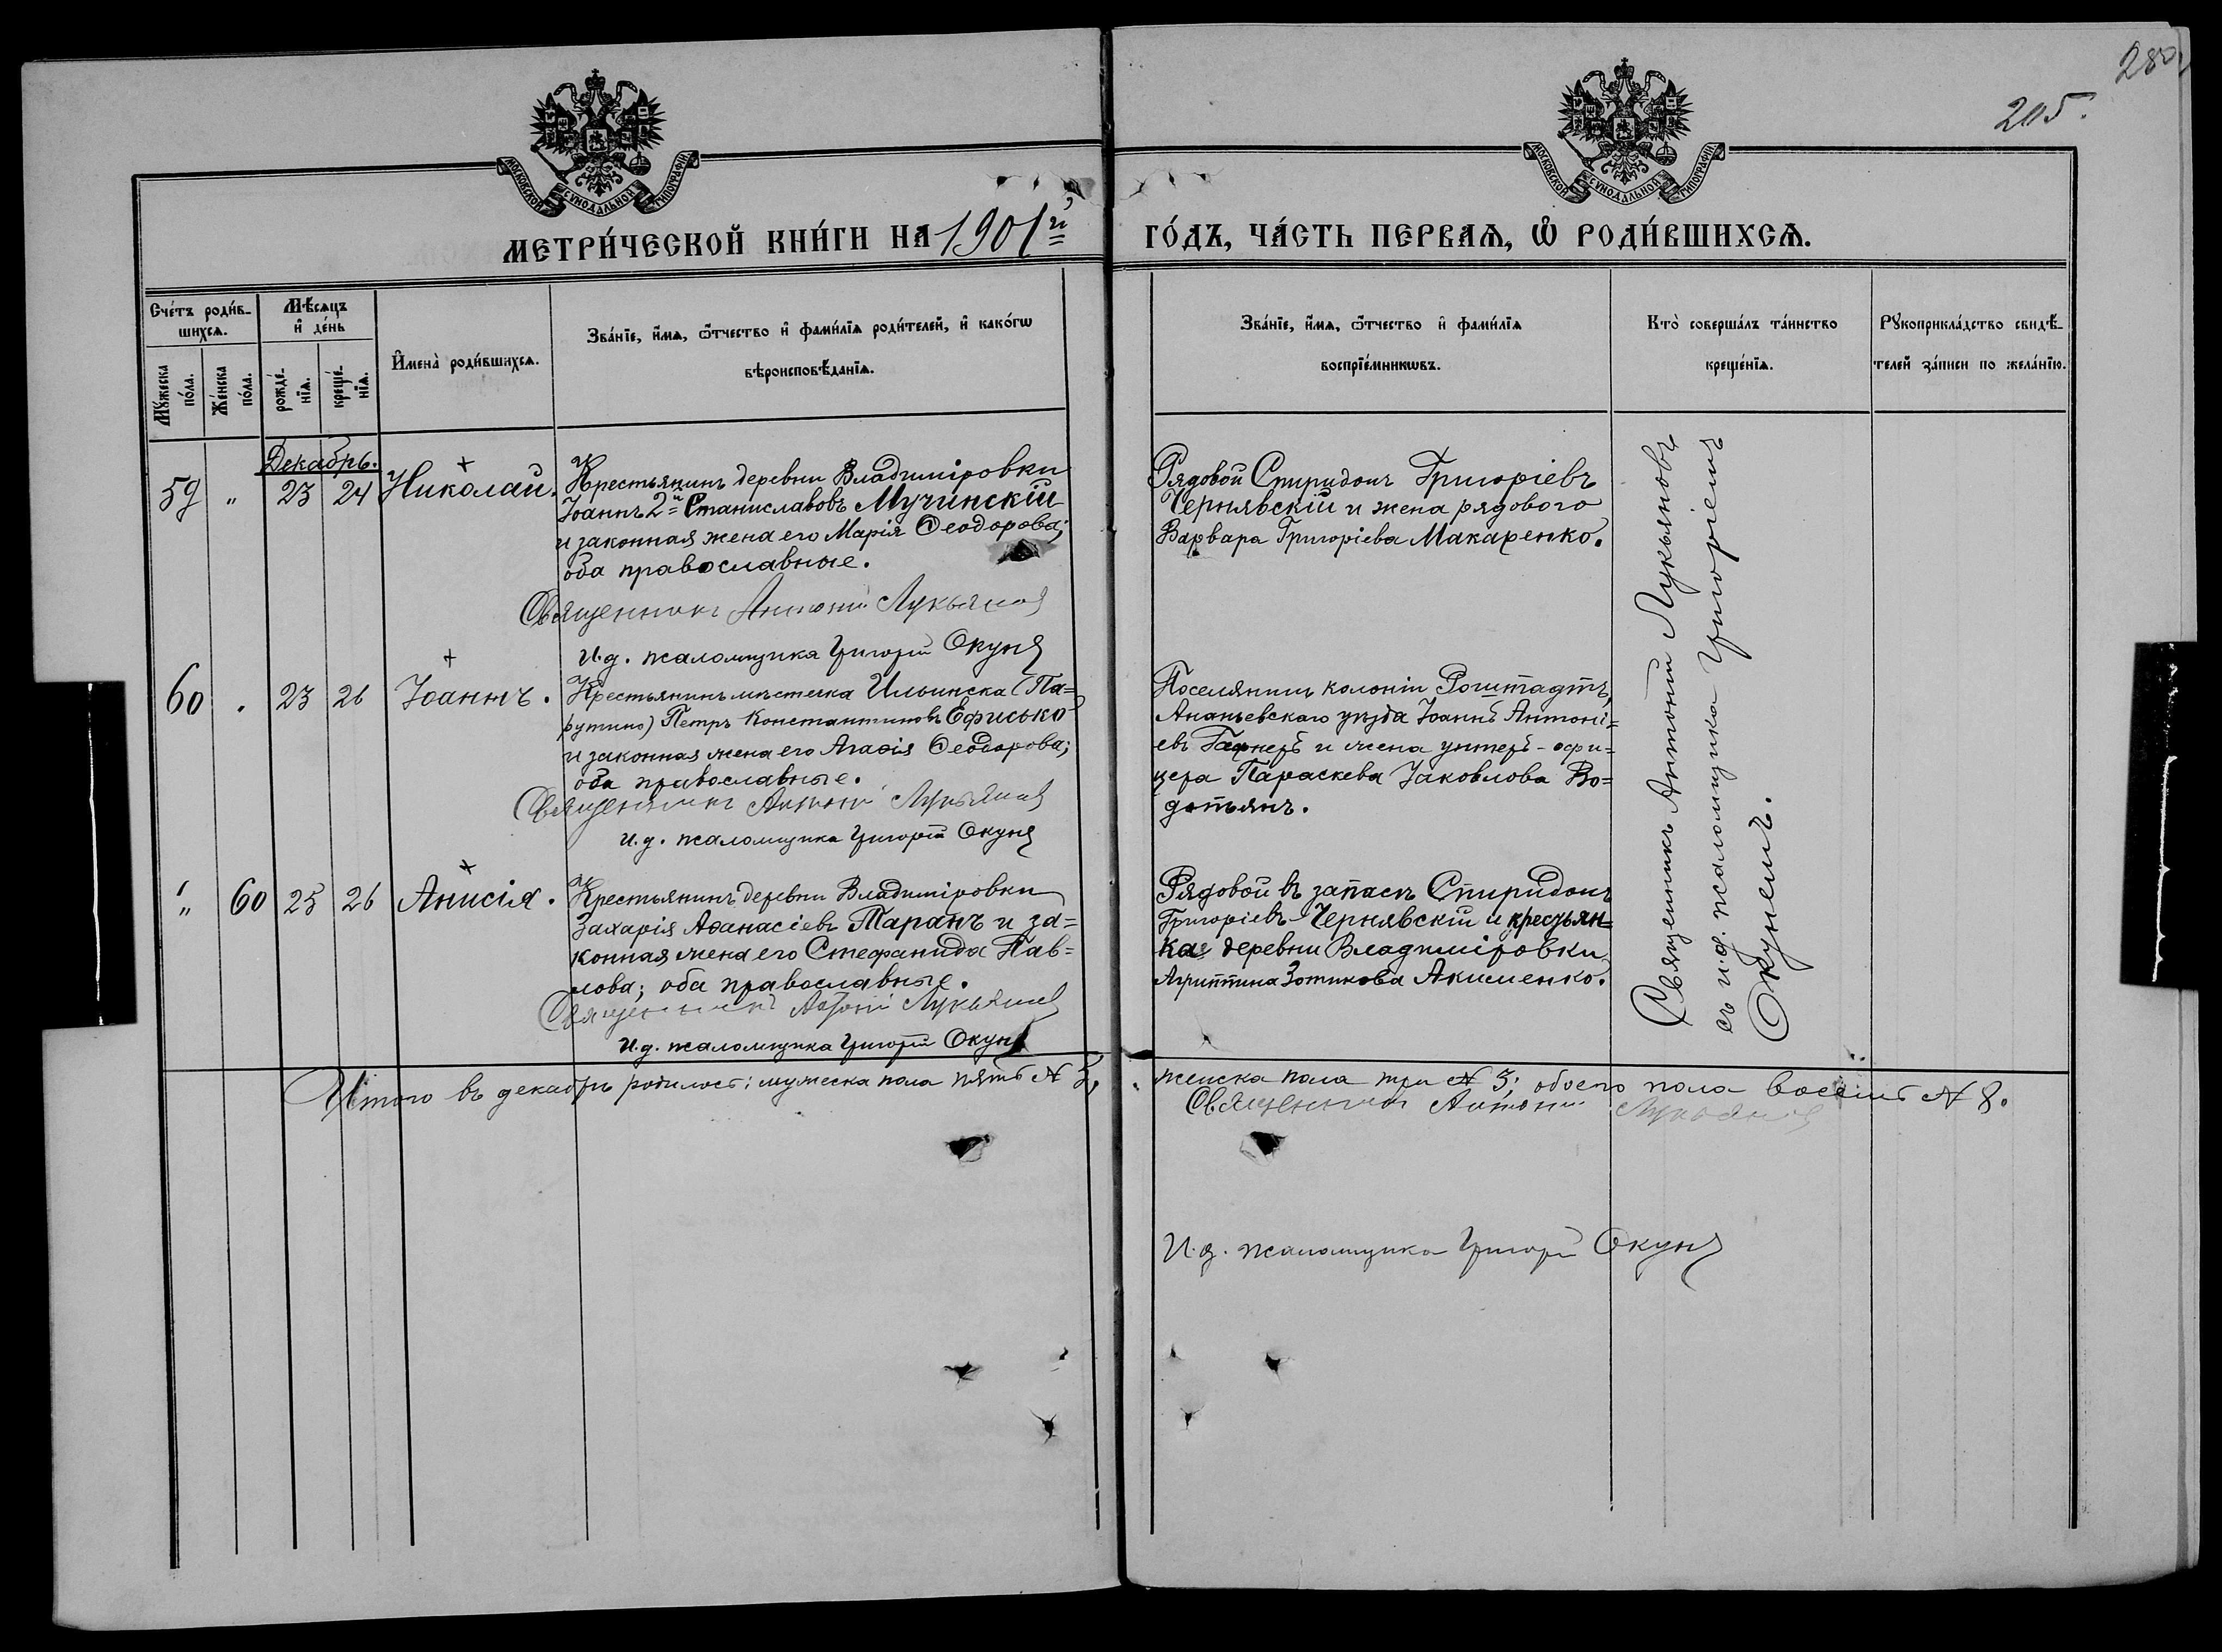 280
205.
МОСКОВСКОЙ СѴНОДАЛЬНОЙ ТИПОГРАФІИ
МОСКОВСКОЙ СѴНОДАЛЬНОЙ ТИПОГРАФІИ
МЕТРИ́ЧЕСКОЙ КНИ́ГИ НА 1901й
ГО́ДЪ, ЧА́СТЬ ПЕРВАѦ, Ѡ҆ РОДИ́ВШИХСѦ.
Сче́тъ роди́в-
шихсѧ.
Мꙋ́жеска
по́ла.
Же́нска
по́ла.
Мѣ́сѧцъ
и҆ де́нь
рожде́-
нїѧ.
креще́-
нїѧ.
И҆мена̀ роди́вшихсѧ.
Зва́нїе, и҆́мѧ, ѻ҆́тчество и҆ фами́лїѧ роди́телей, и҆ како́гѡ
вѣроисповѣ́данїѧ.
Зва́нїе, и҆́мѧ, ѻ҆́тчество и҆ фами́лїѧ
воспрїе́мникѡвъ.
Кто̀ соверша́лъ та́инство
креще́нїѧ.
Рꙋкоприкла́дство свидѣ́-
телей за́писи по жела́нїю.
Декабрь.
59 " 23 24 Николай.
Крестьянинъ деревни Владиміровки
Іоаннъ 2й Станиславовъ Мучинскій
и законная жена его Марія Ѳеодорова;
оба православные.
Священникъ Антоній Лукьянов
И.д. псаломщика Григорій Окунь
Рядовой Спиридонъ Григоріевъ
Чернявскій и жена рядового
Варвара Григоріева Макаренко.
60 . 23 26 Іоаннъ.
Крестьянинъ мѣстечка Ильинска (Па=
рутино) Петръ Константиновъ Ефисько
и законная жена его Агаѳія Ѳеодорова;
оба православные.
Священникъ Антоній Лукьянов
И.д. псаломщика Григорій Окунь
Поселянинъ колоніи Рогитадтъ,
Ананьевскаго уѣзда Іоаннъ Антоні=
евъ Гафнеръ и жена унтеръ-офи=
цера Параскева Іаковлова Во=
дотьянъ.
" 60 25 26 Анисія.
Крестьянинъ деревни Владиміровки
Захарія Аѳанасіевъ Таранъ и за=
конная жена его Стефанида Пав=
лова; оба православные.
Священникъ Антоній Лукьянов
И.д. псаломщика Григорій Окунь
Рядовой въ запасѣ Спиридонъ
Григоріевъ Чернявскій и крестьян=
ка деревни Владиміровки
Агриппина Зотикова Акименко.
Священникъ Антоній Лукьяновъ
съ и.д. псаломщика Григоріемъ
Окунемъ.
Итого въ декабрѣ родилось: мужеска пола пять № 5,
женска пола три № 3; обоего пола восемь № 8.
Священникъ Антоній Лукьянов
И.д. псаломщика Григорій Окунь